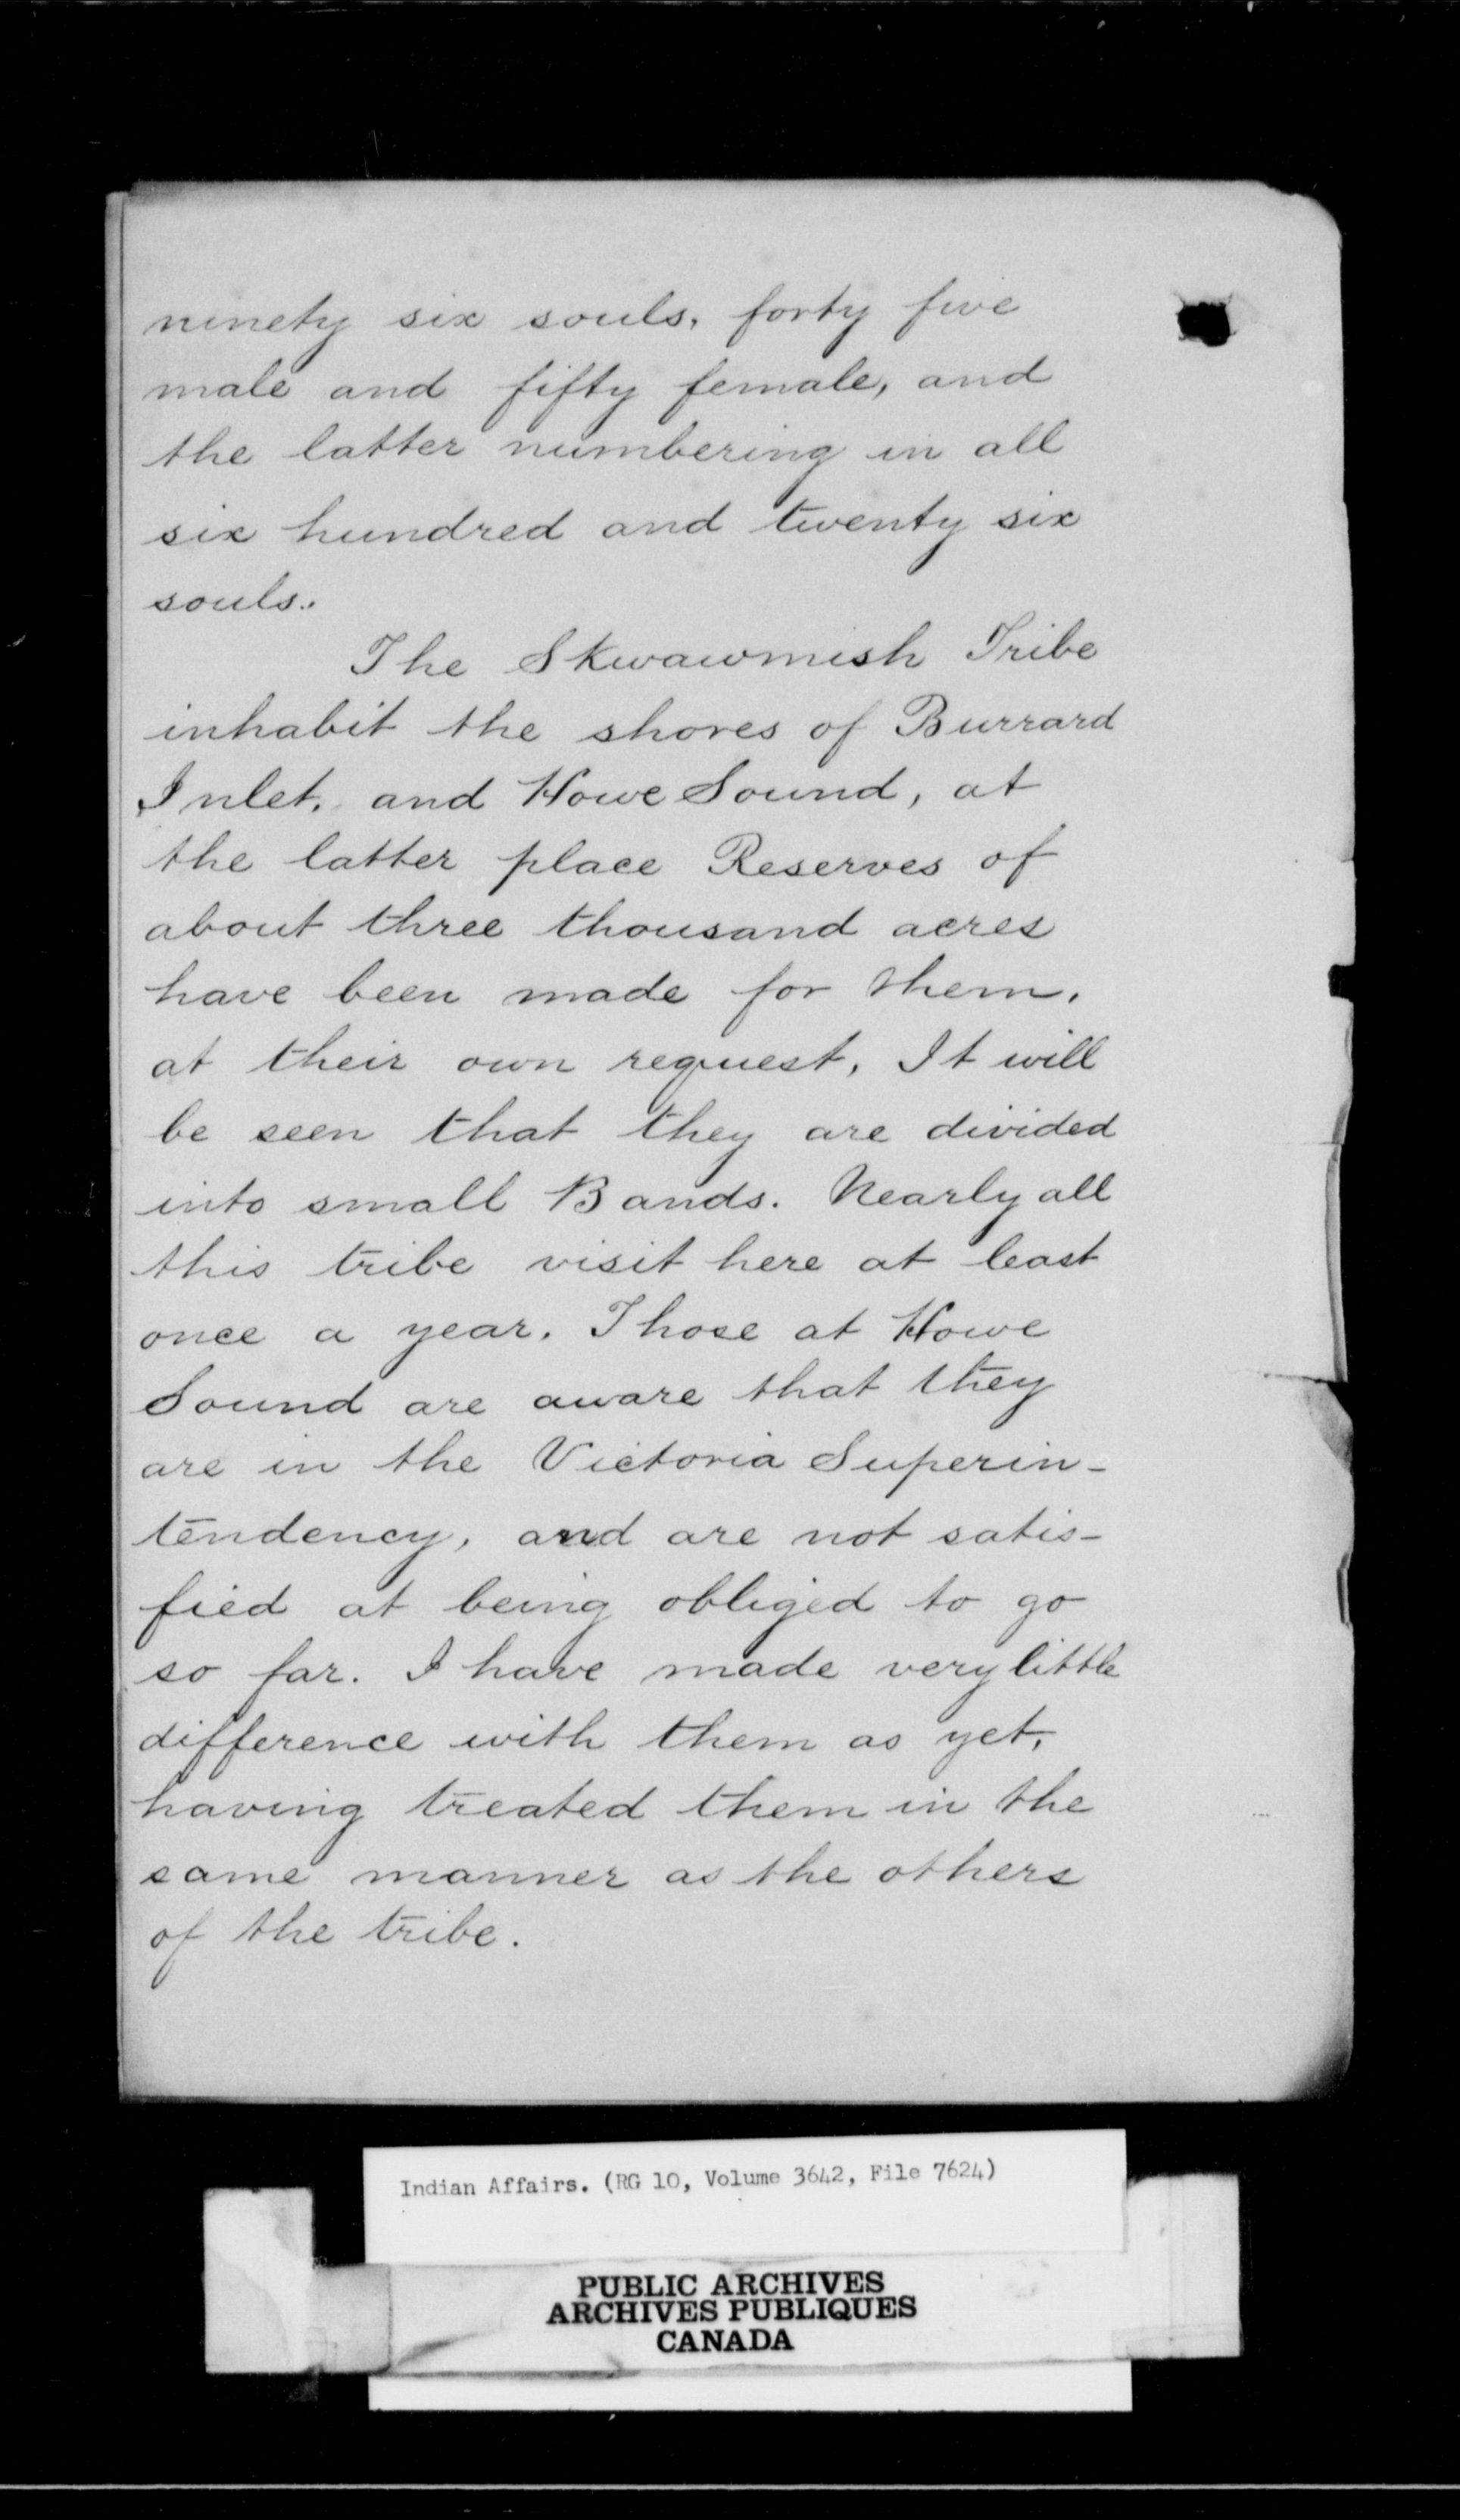 ninety six souls, forty five
male and fifty female, and
the latter numbering in all
six hundred and twenty six
souls.
The Skwawmish Tribe
inhabit the shores of Burrard
Inlet, and Howe Sound, at
the latter place Reserves of
about three thousand acres
have been made for them,
at their own request, It will
be seen that they are divided
into small Bands. Nearly all
this tribe visit here at least
once a year. Those at Howe
Sound are aware that they
are in the Victoria Superin-
tendency, and are not satis-
fied at being obliged to go
so far. I have made very little
difference with them as yet,
having treated them in the
same manner as the others
of the tribe.
Indian Affairs. (RG 10, Volume 3642, File 7624)
PUBLIC ARCHIVES
ARCHIVES PUBLIQUES
CANADA